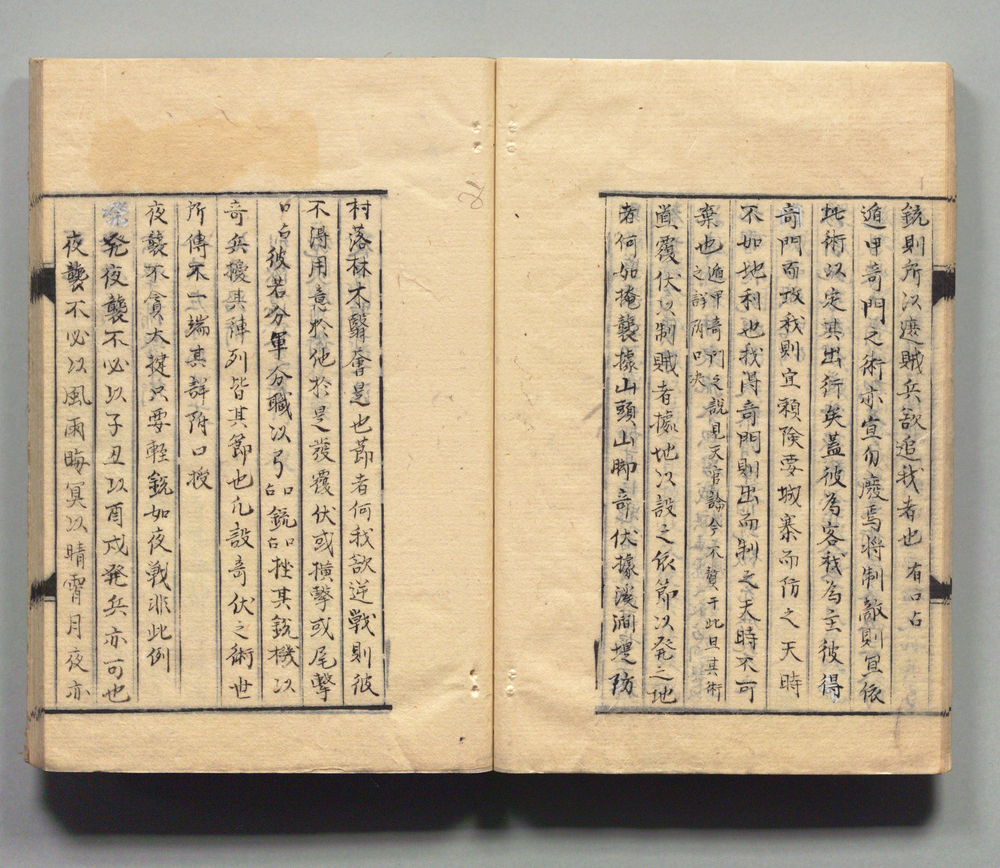 銃則所以遮賊兵欲追我者也 有口占
遁甲奇門之術亦宜勿廢焉将制敵則宜依
此術以定其出行矣蓋彼為客我為主彼得
奇門而攻我則宜頼険要城寨而防之天時
不如地利也我得奇門則出而制之天時不可
棄也 遁甲奇門之説見天官論今不贅于此且其術
之詳附口夬
置覆伏以制賊者據地以設之依節以発之地
者何如掩襲據山頭山脚奇伏據渓澗堤防
村落林木翳薈是也節者何我欲逆戦則彼
不得用意於他於是発覆伏或横撃或尾撃
口占 彼若分軍分職以弓 口占 銃 口占 挫其銃機以
奇兵擾其陣列皆其節也凢設奇伏之術世
所傳不一端其詳附口授
夜襲不貪大捷只要軽銃如夜戦非此例
発夜襲不必以子丑以酉戌発兵亦可也
夜襲不必以風雨晦冥以晴霄月夜亦